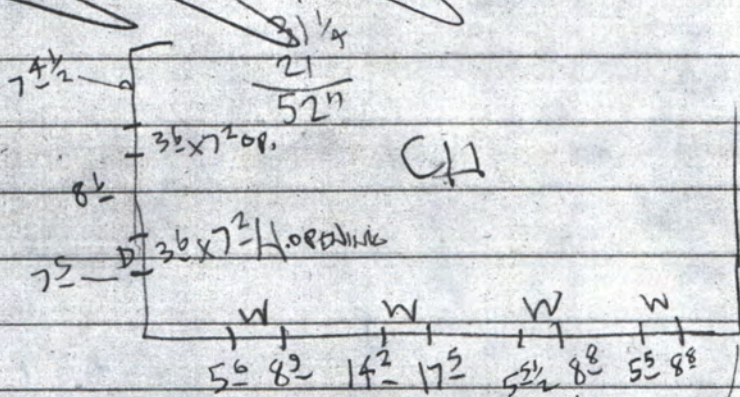 31 1/4
21
52"
7 4 1/2
3 6 x 7 2 OP.
CH
8 6
D 3 6 x 7 2 H. OPENING
7 5
W W W W
5 6 8 9 14 2 17 5 5 5 1/2 8 8 5 5 8 8